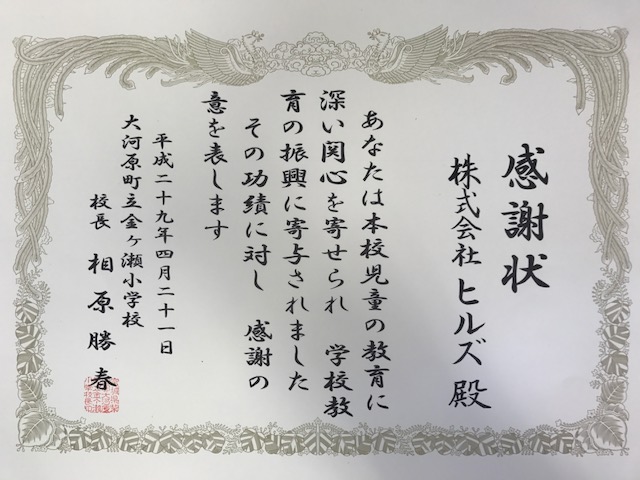 感謝状
株式会社 ヒルズ 殿
あなたは本校児童の教育に
深い関心を寄せられ 学校教
育の振興に寄与されました
その功績に対し 感謝の
意を表します
平成二十九年四月二十一日
大河原町立金ヶ瀬小学校
校長 相原勝春